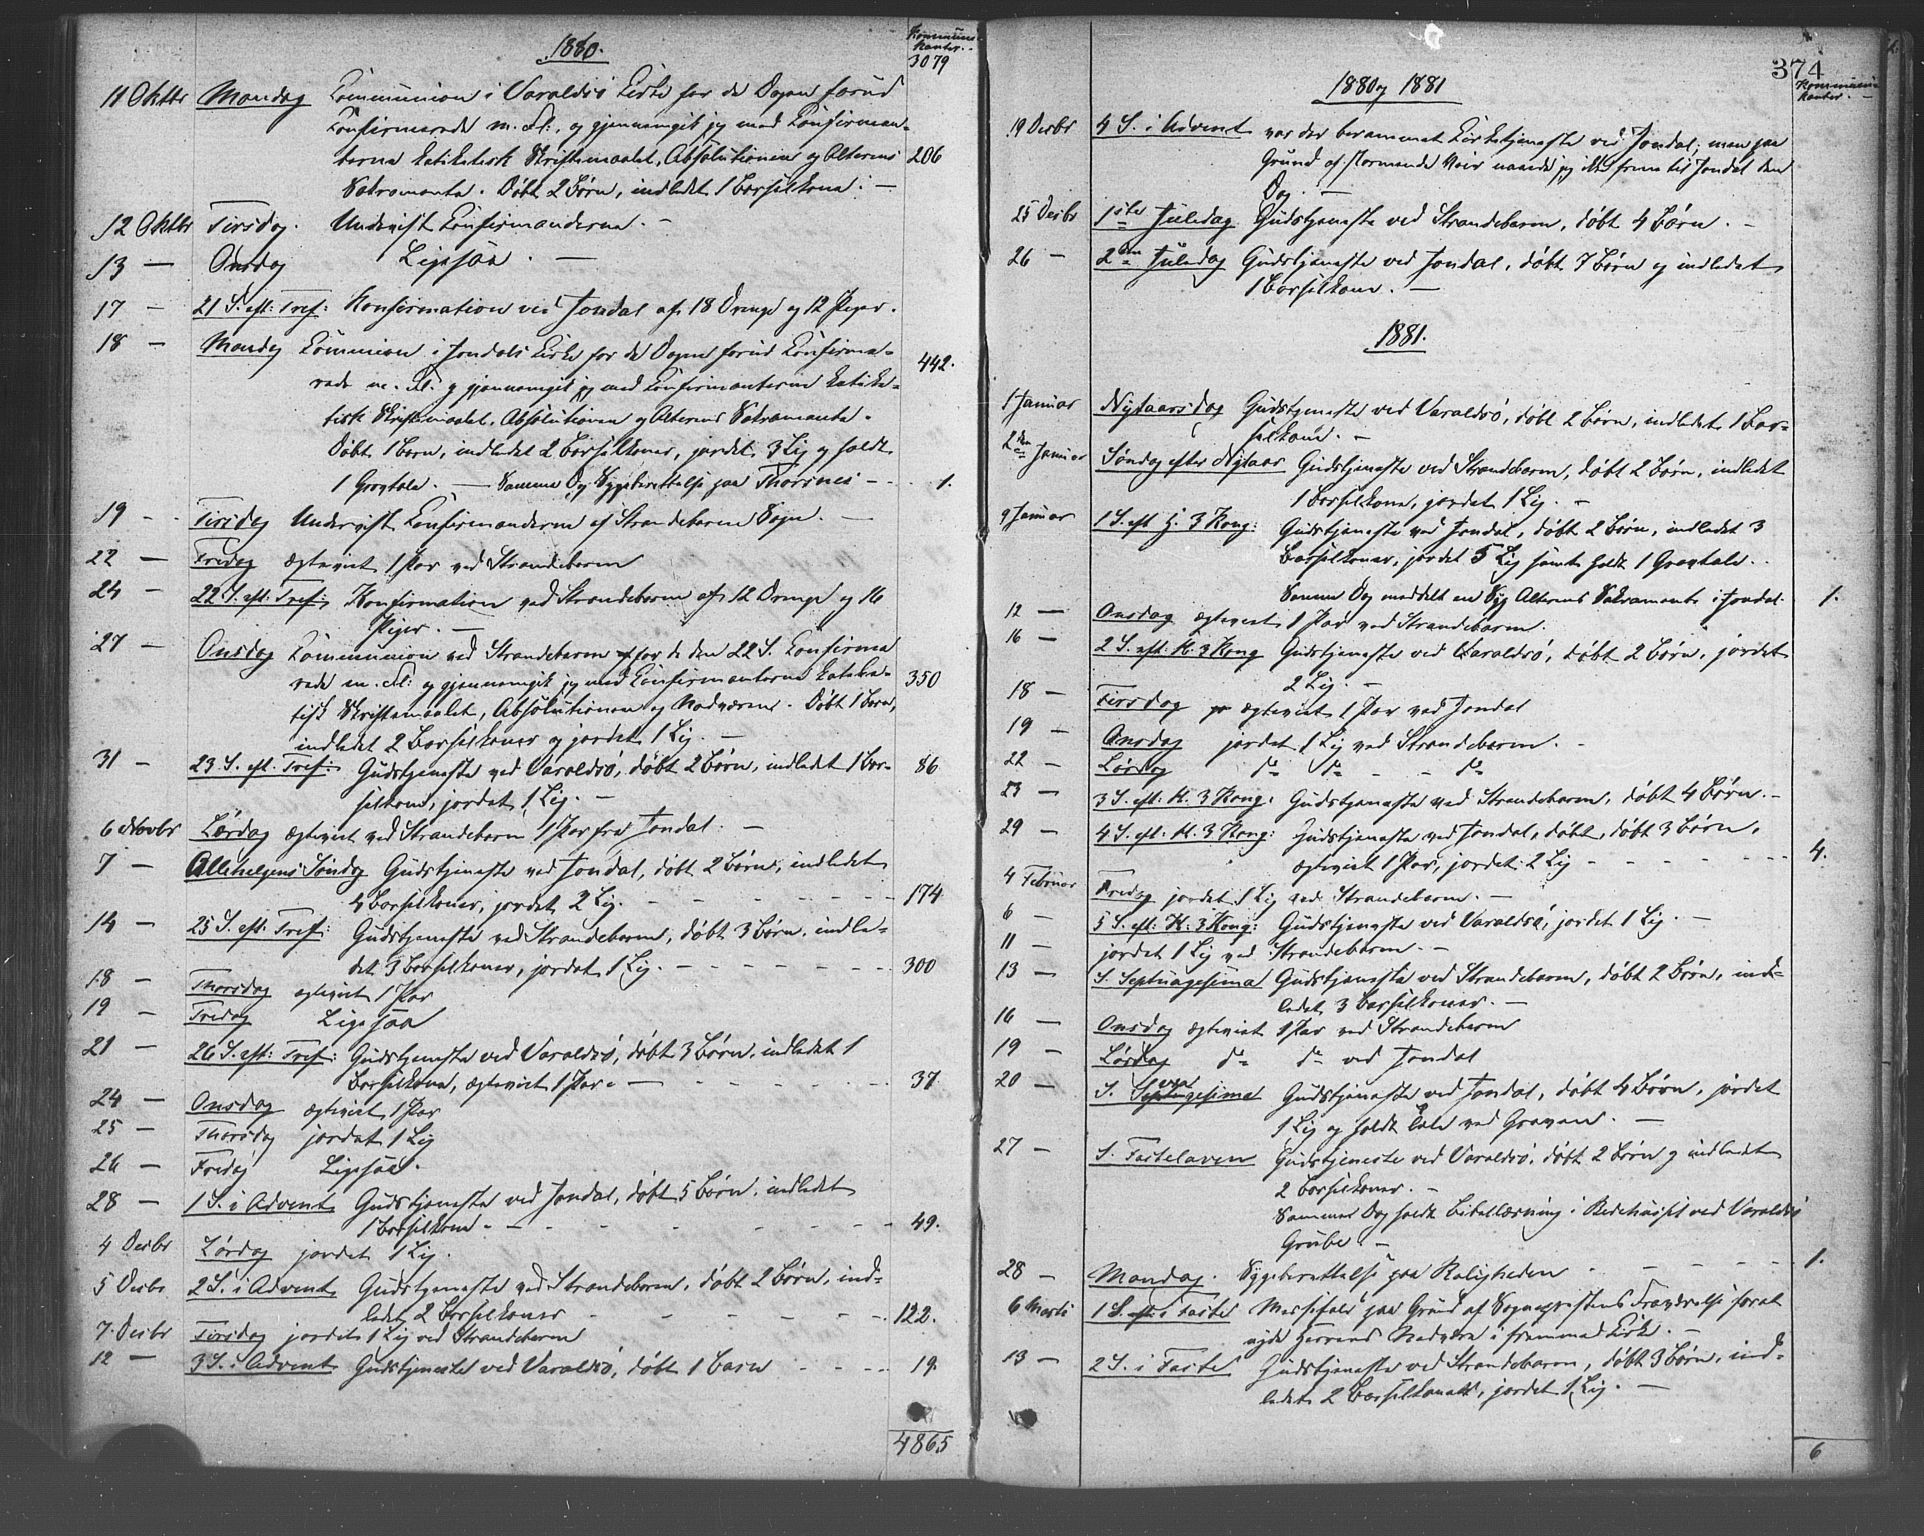 1880.
Kommuni-
kanter.
3079
11 Oktbr Mandag Kommunion i Varaldsö Kirke for de Dagen forud
Konfirmerede m. Fl., og gjennemgik jeg med Konfirman-
terne katiketisk Skriftemaalet, Absolutionen og Alterens 206
Sakramente. Döbt 2 Börn, indledet 1 Barselkone. —
12 Oktbr Tirsdag. Undervist Konfirmanderne. —
13 — Onsdag Ligesaa. —
17 — 21 S. eft: Tref: Konfirmation ved Jondal af 18 Drenge og 12 Piger.
18 — Mandag Kommunion i Jondals Kirke for de Dagen forud Konfirme-
rede m. Fl: og gjennemgik jeg med Konfirmanterne katike- 442.
tisk Skriftemaalet, Absolutionen og Alterens Sakramente.
Döbt 1 Barn, indledet 2 Barselkoner, jordet 3 Lig og holdt
1 Gravtale. — Samme Dag Sygeberettelse paa Thorsnes - - 1.
19 - - Tirsdag Undervist Konfirmanderne af Strandebarm Sogn. —
22 — Fredag ægteviet 1 Par ved Strandebarm
24 — 22 S. eft: Tref: Konfirmation ved Strandebarm af 12 Drenge og 16
Piger. —
27 — Onsdag Kommunion ved Strandebarm for de den 22 S. Konfirme
rede m. Fl: og gjennemgik jeg med Konfirmanterne kateke- 350
tisk Skriftemaalet, Absolutionen og Nadværen. Döbt 1 Barn,
indledet 2 Barselkoner og jordet 1 Lig. —
31 — 23 S. eft. Tref: Gudstjeneste ved Varaldsö, döbt 2 Börn, indledet 1 Bar- 86
selkone, jordet 1 Lig. —
6 Novbr Lørdag ægteviet ved Strandebarm 1 Par fra Jondal. —
7 — Allehelgens Söndag Gudstjeneste ved Jondal, döbt 2 Börn, indledet
4 Barselkoner, jordet 2 Lig. - - - - 174
14 — 25 S. eft: Tref: Gudstjeneste ved Strandebarm, döbt 3 Börn, indle-
det 3 Barselkoner, jordet 1 Lig. - - - - 300
18 — Thorsdag ægteviet 1 Par
19 — Fredag Ligesaa
21 — 26 S. eft: Tref: Gudstjeneste ved Varaldsö, döbt 3 Börn, indledet 1
Barselkone, ægteviet 1 Par. — - - - 37.
24 — Onsdag ægteviet 1 Par
25 — Thorsdag jordet 1 Lig
26 — Fredag Ligesaa.
28 — 1 S. i Advent Gudstjeneste ved Jondal, döbt 5 Börn, indledet
1 Barselkone. - - - - 49.
4 Decbr Lørdag jordet 1 Lig.
5 Decbr 2 S. i Advent Gudstjeneste ved Strandebarm, döbt 2 Börn, ind-
ledet 2 Barselkoner - - - - 122.
7 Decbr Tirsdag jordet 1 Lig ved Strandebarm
12 — 3 S. i Advent Gudstjeneste ved Varaldsö, döbt 1 Barn - - - 19.
4865
374
Kommuni-
kanter. —
1880 og 1881
19 Decbr 4 S. i Advent var der berammet Kirketjeneste ved Jondal; men paa
Grund af stormende Veir naaede jeg ikke frem til Jondal den
Dag. —
25 Decbr 1ste Juledag Gudstjeneste ved Strandebarm, döbt 4 Börn. -
26 — 2den Juledag Gudstjeneste ved Jondal, döbt 7 Börn og indledet
1 Barselkone. —
1881.
1 Januar Nytaarsdag Gudstjeneste ved Varaldsö, döbt 2 Börn, indledet 1 Bar-
selkone. —
2den Januar Söndag efter Nytaar Gudstjeneste ved Strandebarm, döbt 2 Börn, indledet
1 Barselkone, jordet 1 Lig. —
9 Januar 1 S. eft H. 3 Kong: Gudstjeneste ved Jondal, döbt 2 Börn, indledet 3
Barselkoner, jordet 5 Lig samt holdt 1 Gravtale.
Samme Dag meddelt en Syg Alterens Sakramente i Jondal. 1.
12 — Onsdag ægteviet 1 Par ved Strandebarm.
16 — 2 S. eft: H. 3 Kong Gudstjeneste ved Varaldsö, döbt 2 Börn, jordet
2 Lig. —
18 — Tirsdag ægteviet 1 Par ved Jondal
19 — Onsdag jordet 1 Lig ved Strandebarm. -
22 — Lørdag do do - - do
23 — 3 S. eft: H. 3 Kong: Gudstjeneste ved Strandebarm, döbt 4 Börn. -
29 — 4 S. eft: H. 3 Kong: Gudstjeneste ved Jondal, döbt, döbt 3 Börn,
ægteviet 1 Par, jordet 2 Lig - - - - 4.
4 Februar Fredag jordet 1 Lig ved Strandebarm. —
6 — 5 S. eft: H. 3 Kong: Gudstjeneste ved Varaldsö, jordet 1 Lig. —
11 — jordet 1 Lig ved Strandebarm. -
13 — S. Septuagesima Gudstjeneste ved Strandebarm, döbt 2 Börn, ind-
ledet 3 Barselkoner. —
16 — Onsdag ægteviet 1 Par ved Strandebarm
19 — Lørdag do do ved Jondal
20 — S. Sexagesima Gudstjeneste ved Jondal, döbt 4 Börn, jordet
1 Lig og holdt Tale ved Graven. —
27 — S. Fastelaven Gudstjeneste ved Varaldsö, döbt 2 Börn og indledet
2 Barselkoner. -
Samme Dag holdt Bibellæsning i Bedehuset ved Varaldsö
Grube. -
28 — Mandag. Sygeberettelse paa Roligheden - - - - 1.
6 Marts 1 S. i Faste Messefald paa Grund af Sognepræstens Fraværelse for at
nyde Herrens Nadvere i fremmed Kirke. —
13 — 2 S. i Faste Gudstjeneste ved Strandebarm, döbt 3 Börn, ind-
ledet 2 Barselkoner, jordet 1 Lig. —
6